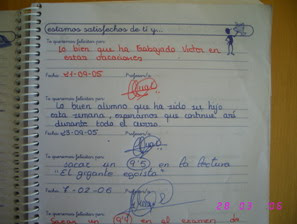 ¡estamos satisfechos de ti y...
Te queremos felicitar por:
Lo bien que ha trabajado Victor en
estas vacaciones
Fecha: 21-09-05
Profesor/a
Te queremos felicitar por:
Lo buen alumno que ha sido su hijo
esta semana, esperamos que continue así
durante todo el curso.
Fecha: 23-09-05
Profesor/a
Te queremos felicitar por:
sacar un (9'5) en la lectura
"El gigante egoísta"
Fecha: 8-02-06
Profesor/a
Te queremos felicitar por:
Sacar un (9'4) en el examen de
28 03 '06